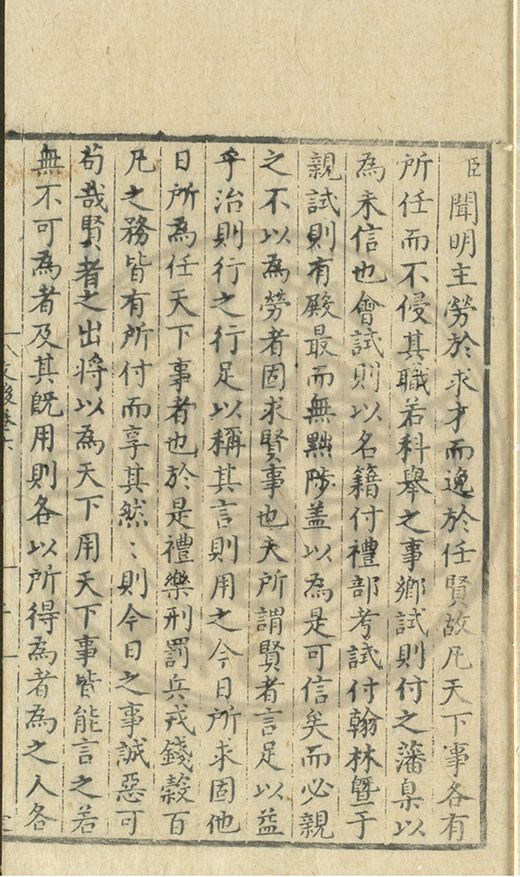 臣聞明主勞於求才而逸於任賢故凡天下事各有
所任而不侵其職若科舉之事鄉試則付之藩臬以
為未信也會試則以名籍付禮部考試付翰林暨于
親試則有殿最而無黜陟盖以為是可信矣而必親
之不以為勞者固求賢事也夫所謂賢者言足以益
乎治則行之行足以稱其言則用之今日所求固他
日所為任天下事者也於是禮樂刑罰兵戎錢穀百
凡之務皆有所付而享其然：則今日之事誠惡可
苟哉賢者之出將以為天下用天下事皆能言之若
無不可為者及其既用則各以所得為者為之人各